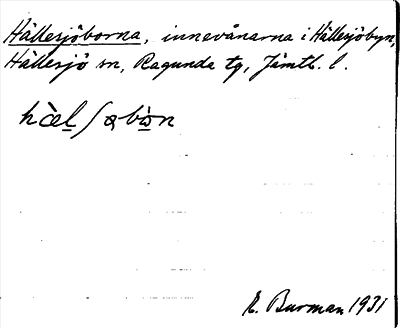 Hällesjöborna, innevånarna i Hällesjöbyn,
Hällesjö sn, Ragunda tg, Jämtl. l.
hæ̀l ʃɷbɷ̀n
E. Burman 1931